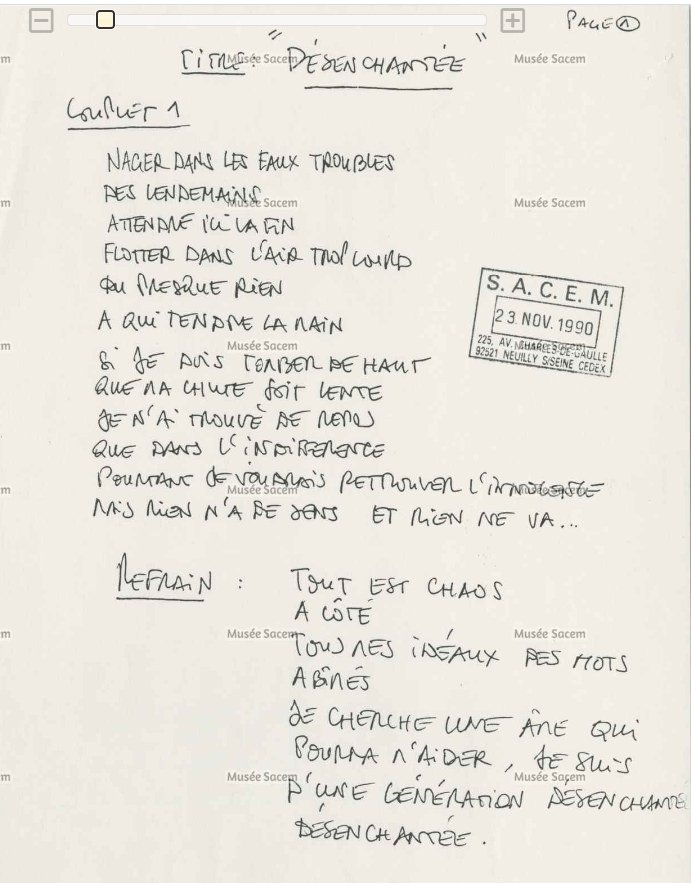 PAGE 1
TITRE : "DÉSENCHANTÉE"
COUPLET 1
NAGER DANS LES EAUX TROUBLES
DES LENDEMAINS
ATTENDRE ICI LA FIN
FLOTTER DANS L'AIR TROP LOURD
DU PRESQUE RIEN
A QUI TENDRE LA MAIN
SI JE DOIS TOMBER DE HAUT
QUE MA CHUTE SOIT LENTE
JE N'AI TROUVÉ DE REPOS
QUE DANS L'INDIFERENCE
POURTANT JE VOUDRAIS RETROUVER L'INNOCENCE
MAIS RIEN N'A DE SENS ET RIEN NE VA...
REFRAIN : TOUT EST CHAOS
A CÔTÉ
TOUS MES IDÉAUX DES MOTS
ABÎMÉS
JE CHERCHE UNE ÂME QUI
POURRA M'AIDER, JE SUIS
D'UNE GÉNÉRATION DÉSENCHANTÉE
DÉSENCHANTÉE.
S. A. C. E. M.
23 NOV. 1990
225, AV. CHARLES-DE-GAULLE
92521 NEUILLY S/SEINE CEDEX
Musée Sacem